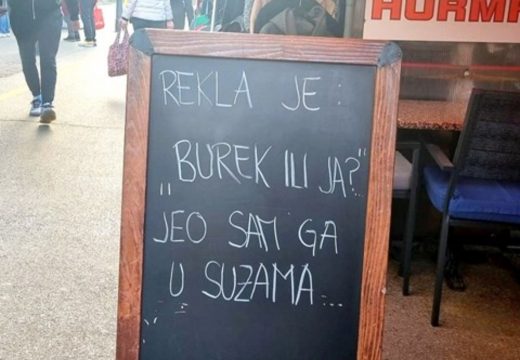 HURMA
REKLA JE :
„BUREK ILI JA?"
JEO SAM GA
U SUZAMA...